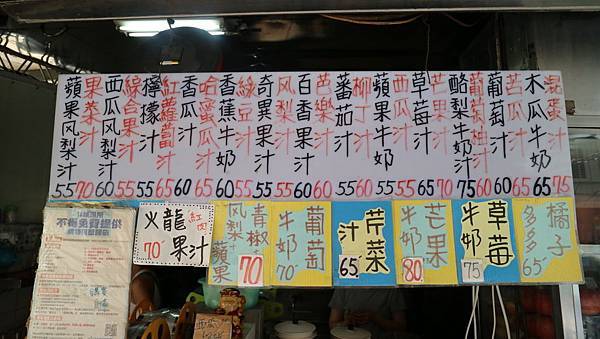 蘋果风梨汁 55
果菜汁 70
西瓜风梨汁 60
綜合果汁 55
檸檬汁 55
紅蘿蔔汁 65
香瓜汁 60
哈蜜瓜汁 65
香蕉牛奶 60
綠豆汁 55
奇異果汁 55
风梨汁 55
百香果汁 60
芭樂汁 60
蕃茄汁 55
柳丁汁 60
蘋果牛奶 55
西瓜汁 55
草莓汁 65
芒果汁 70
酪梨牛奶汁 75
葡萄柚汁 60
葡萄汁 60
苦瓜汁 65
木瓜牛奶 65
混蛋汁 75
火龍果汁 紅肉 70
青椒风梨蘋果 70
葡萄牛奶 70
芹菜汁 65
芒果牛奶 80
草莓牛奶 75
橘子多多 65
不得免費提供